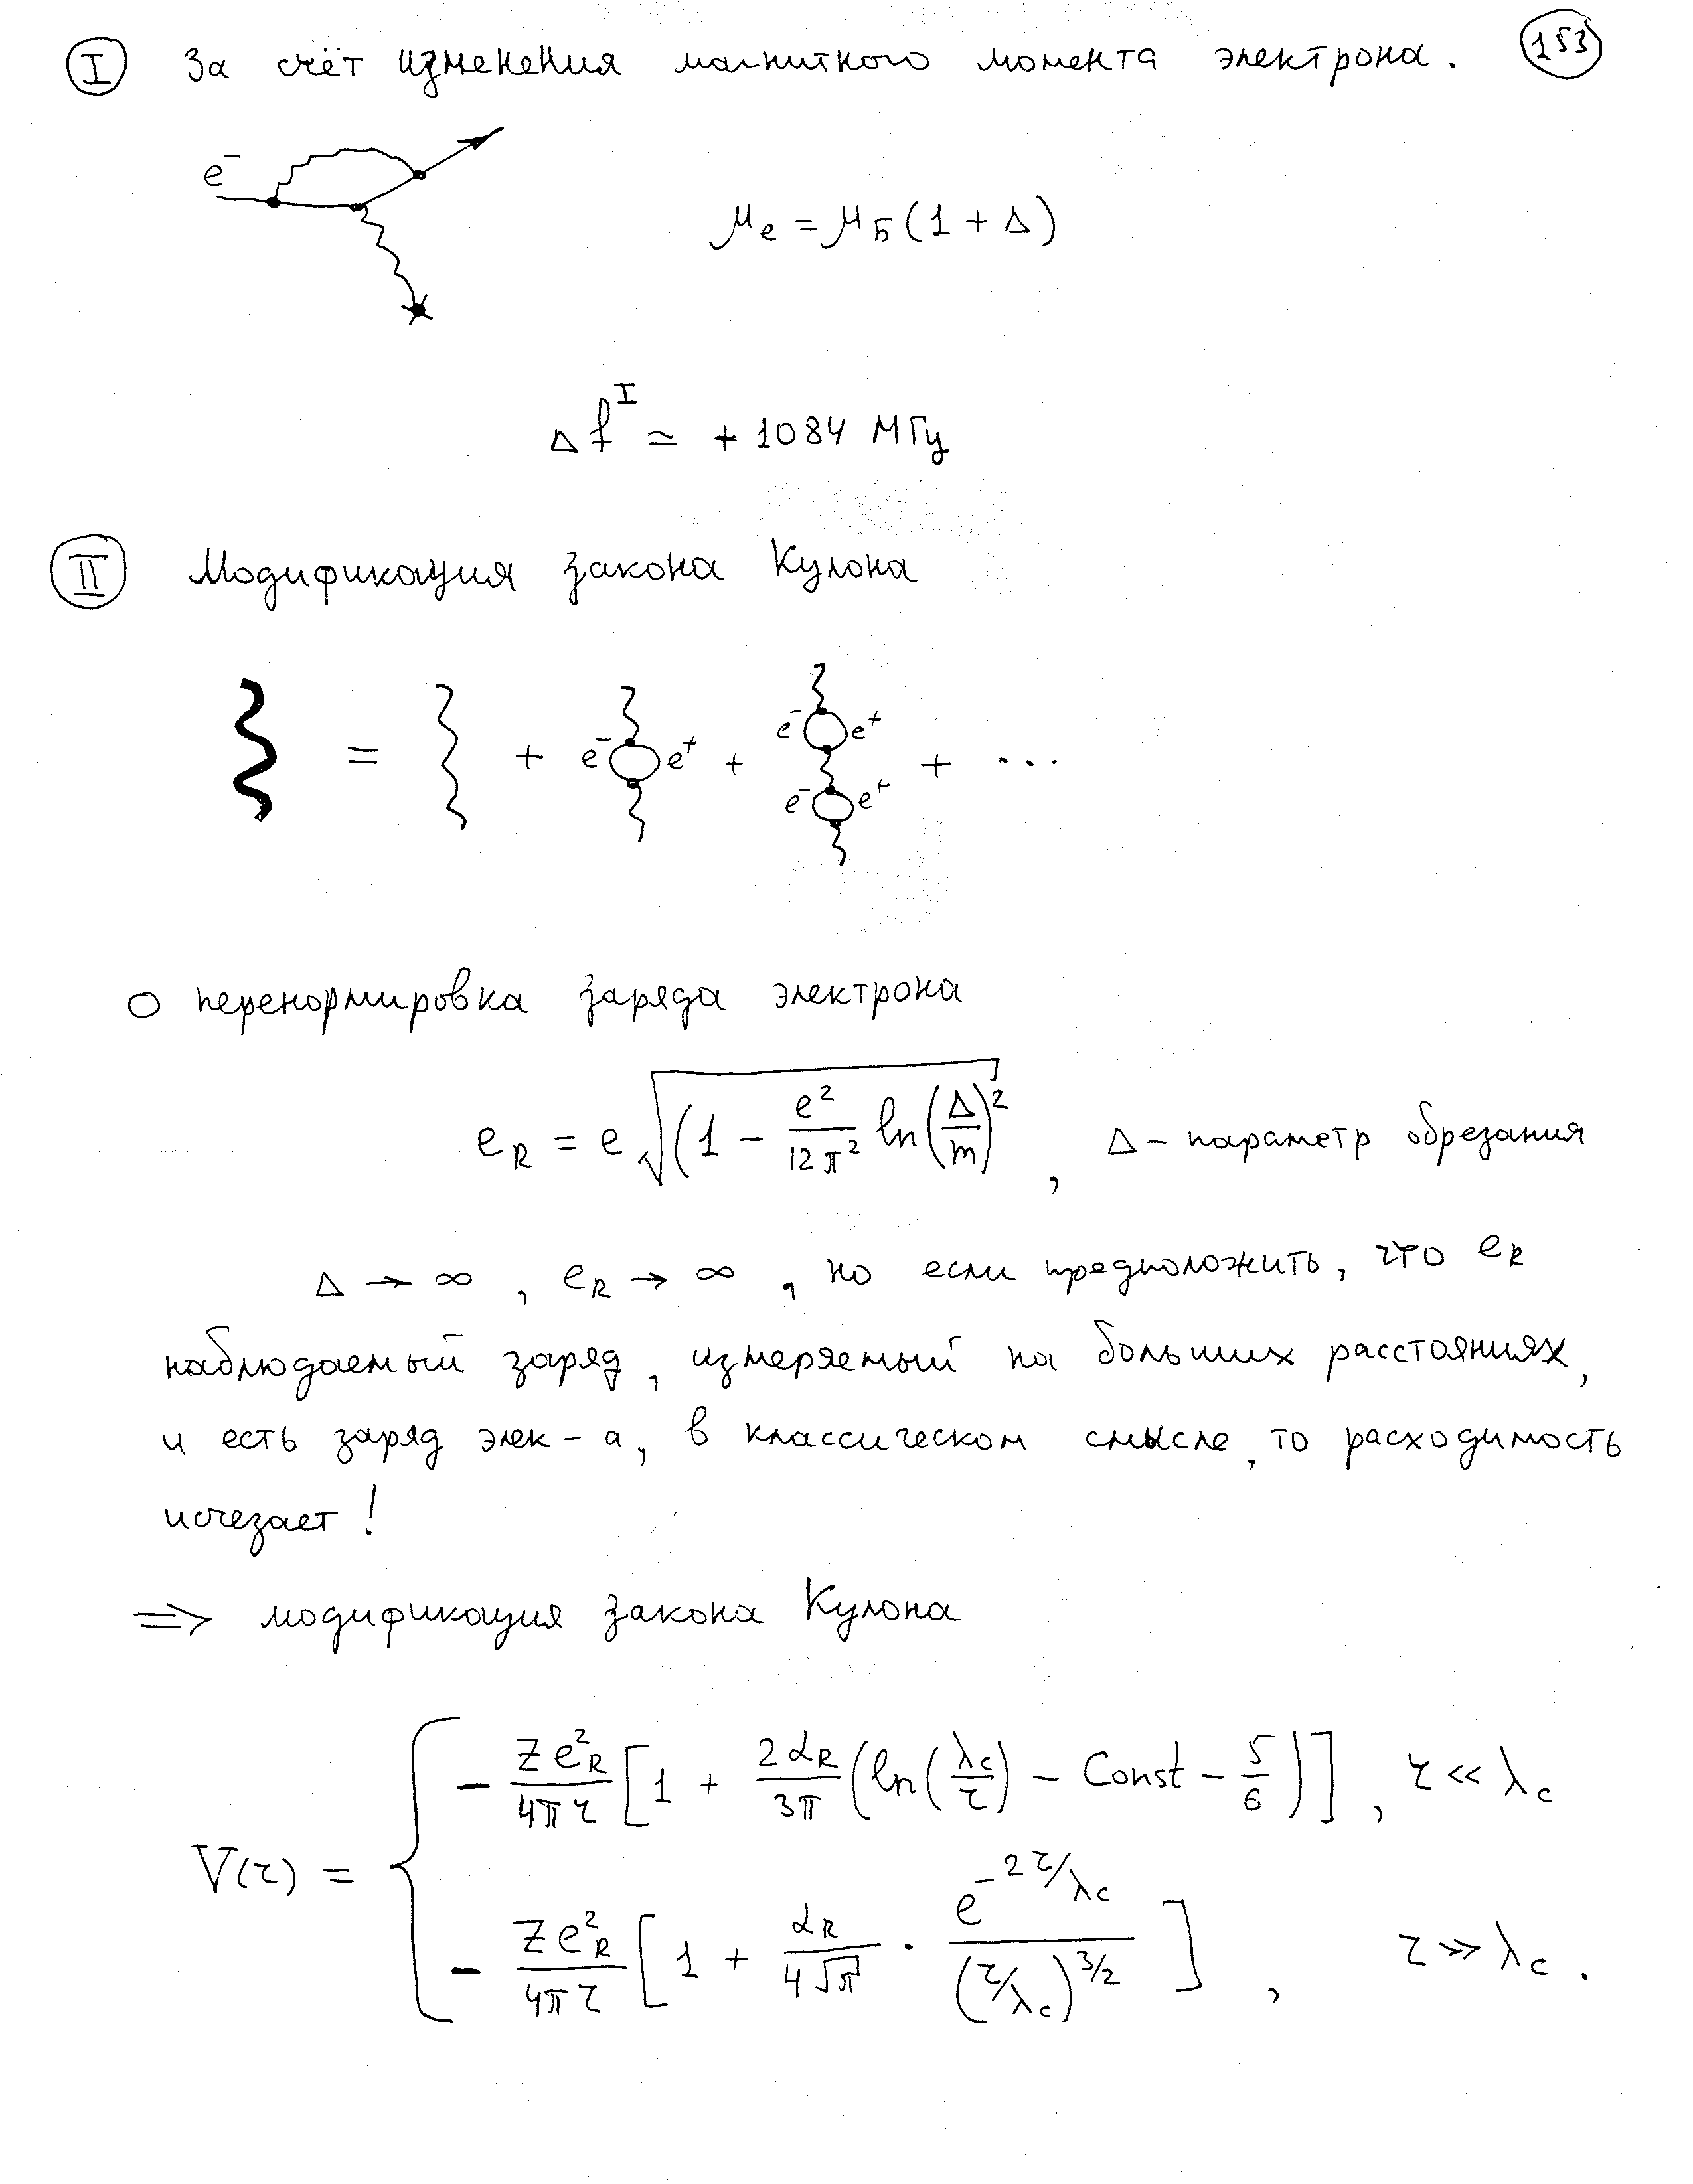 I За счёт изменения магнитного момента электрона. 153
e⁻
μ_e = μ_Б (1 + Δ)
Δf^I ≃ + 1084 МГц
II Модификация закона Кулона
= + e⁻ e⁺ + e⁻ e⁺ e⁻ e⁺ + ...
○ перенормировка заряда электрона
e_R = e √(1 - e²/12π² ln(Δ/m)² , Δ - параметр обрезания
Δ → ∞ , e_R → ∞ , но если предположить, что e_R
наблюдаемый заряд, измеряемый на больших расстояниях,
и есть заряд элек-а, в классическом смысле, то расходимость
исчезает!
⇒ модификация закона Кулона
V(r) = { - Ze²_R/4πr [1 + 2α_R/3π (ln(λ_c/r) - Const - 5/6)] , r ≪ λ_c
- Ze²_R/4πr [1 + α_R/4√π · e^(-2r/λ_c)/(r/λ_c)^(3/2)] , r ≫ λ_c .